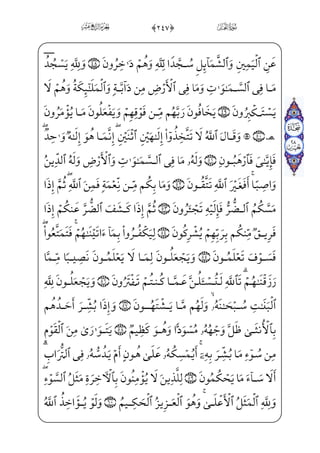 ﴿٢٤٧﴾
عَنِ ٱلۡيَمِينِ وَٱلشَّمَآئِلِ سُجَّدٗا لِّلَّهِ وَهُمۡ دَٰخِرُونَ ٤٨ وَلِلَّهِۤ يَسۡجُدُۤ
مَا فِي ٱلسَّمَٰوَٰتِ وَمَا فِي ٱلۡأَرۡضِ مِن دَآبَّةٖ وَٱلۡمَلَٰٓئِكَةُ وَهُمۡ لَا
يَسۡتَكۡبِرُونَ ٤٩ يَخَافُونَ رَبَّهُم مِّن فَوۡقِهِمۡ وَيَفۡعَلُونَ مَا يُؤۡمَرُونَ
۩ ٥٠ ۞ وَقَالَ ٱللَّهُ لَا تَتَّخِذُوٓاْ إِلَٰهَيۡنِ ٱثۡنَيۡنِۖ إِنَّمَا هُوَ إِلَٰهٞ وَٰحِدٞ
فَإِيَّٰيَ فَٱرۡهَبُونِ ٥١ وَلَهُۥ مَا فِي ٱلسَّمَٰوَٰتِ وَٱلۡأَرۡضِ وَلَهُ ٱلدِّينُ
وَاصِبًاۚ أَفَغَيۡرَ ٱللَّهِ تَتَّقُونَ ٥٢ وَمَا بِكُم مِّن نِّعۡمَةٖ فَمِنَ ٱللَّهِۖ ثُمَّ إِذَا
مَسَّكُمُ ٱلضُّرُّ فَإِلَيۡهِ تَجۡـَٔرُونَ ٥٣ ثُمَّ إِذَا كَشَفَ ٱلضُّرَّ عَنكُمۡ إِذَا
فَرِيقٞ مِّنكُم بِرَبِّهِمۡ يُشۡرِكُونَ ٥٤ لِيَكۡفُرُواْ بِمَآ ءَاتَيۡنَٰهُمۡۚ فَتَمَتَّعُواْ
فَسَوۡفَ تَعۡلَمُونَ ٥٥ وَيَجۡعَلُونَ لِمَا لَا يَعۡلَمُونَ نَصِيبٗا مِّمَّا
رَزَقۡنَٰهُمۡۗ تَٱللَّهِ لَتُسۡـَٔلُنَّ عَمَّا كُنتُمۡ تَفۡتَرُونَ ٥٦ وَيَجۡعَلُونَ لِلَّهِ
ٱلۡبَنَٰتِ سُبۡحَٰنَهُۥ وَلَهُم مَّا يَشۡتَهُونَ ٥٧ وَإِذَا بُشِّرَ أَحَدُهُم
بِٱلۡأُنثَىٰ ظَلَّ وَجۡهُهُۥ مُسۡوَدّٗا وَهُوَ كَظِيمٞ ٥٨ يَتَوَٰرَىٰ مِنَ ٱلۡقَوۡمِ
مِن سُوٓءِ مَا بُشِّرَ بِهِۦٓۚ أَيُمۡسِكُهُۥ عَلَىٰ هُونٍ أَمۡ يَدُسُّهُۥ فِي ٱلتُّرَابِۗ
أَلَا سَآءَ مَا يَحۡكُمُونَ ٥٩ لِلَّذِينَ لَا يُؤۡمِنُونَ بِٱلۡأٓخِرَةِ مَثَلُ ٱلسَّوۡءِۖ
وَلِلَّهِ ٱلۡمَثَلُ ٱلۡأَعۡلَىٰۚ وَهُوَ ٱلۡعَزِيزُ ٱلۡحَكِيمُ ٦٠ وَلَوۡ يُؤَاخِذُ ٱللَّهُ